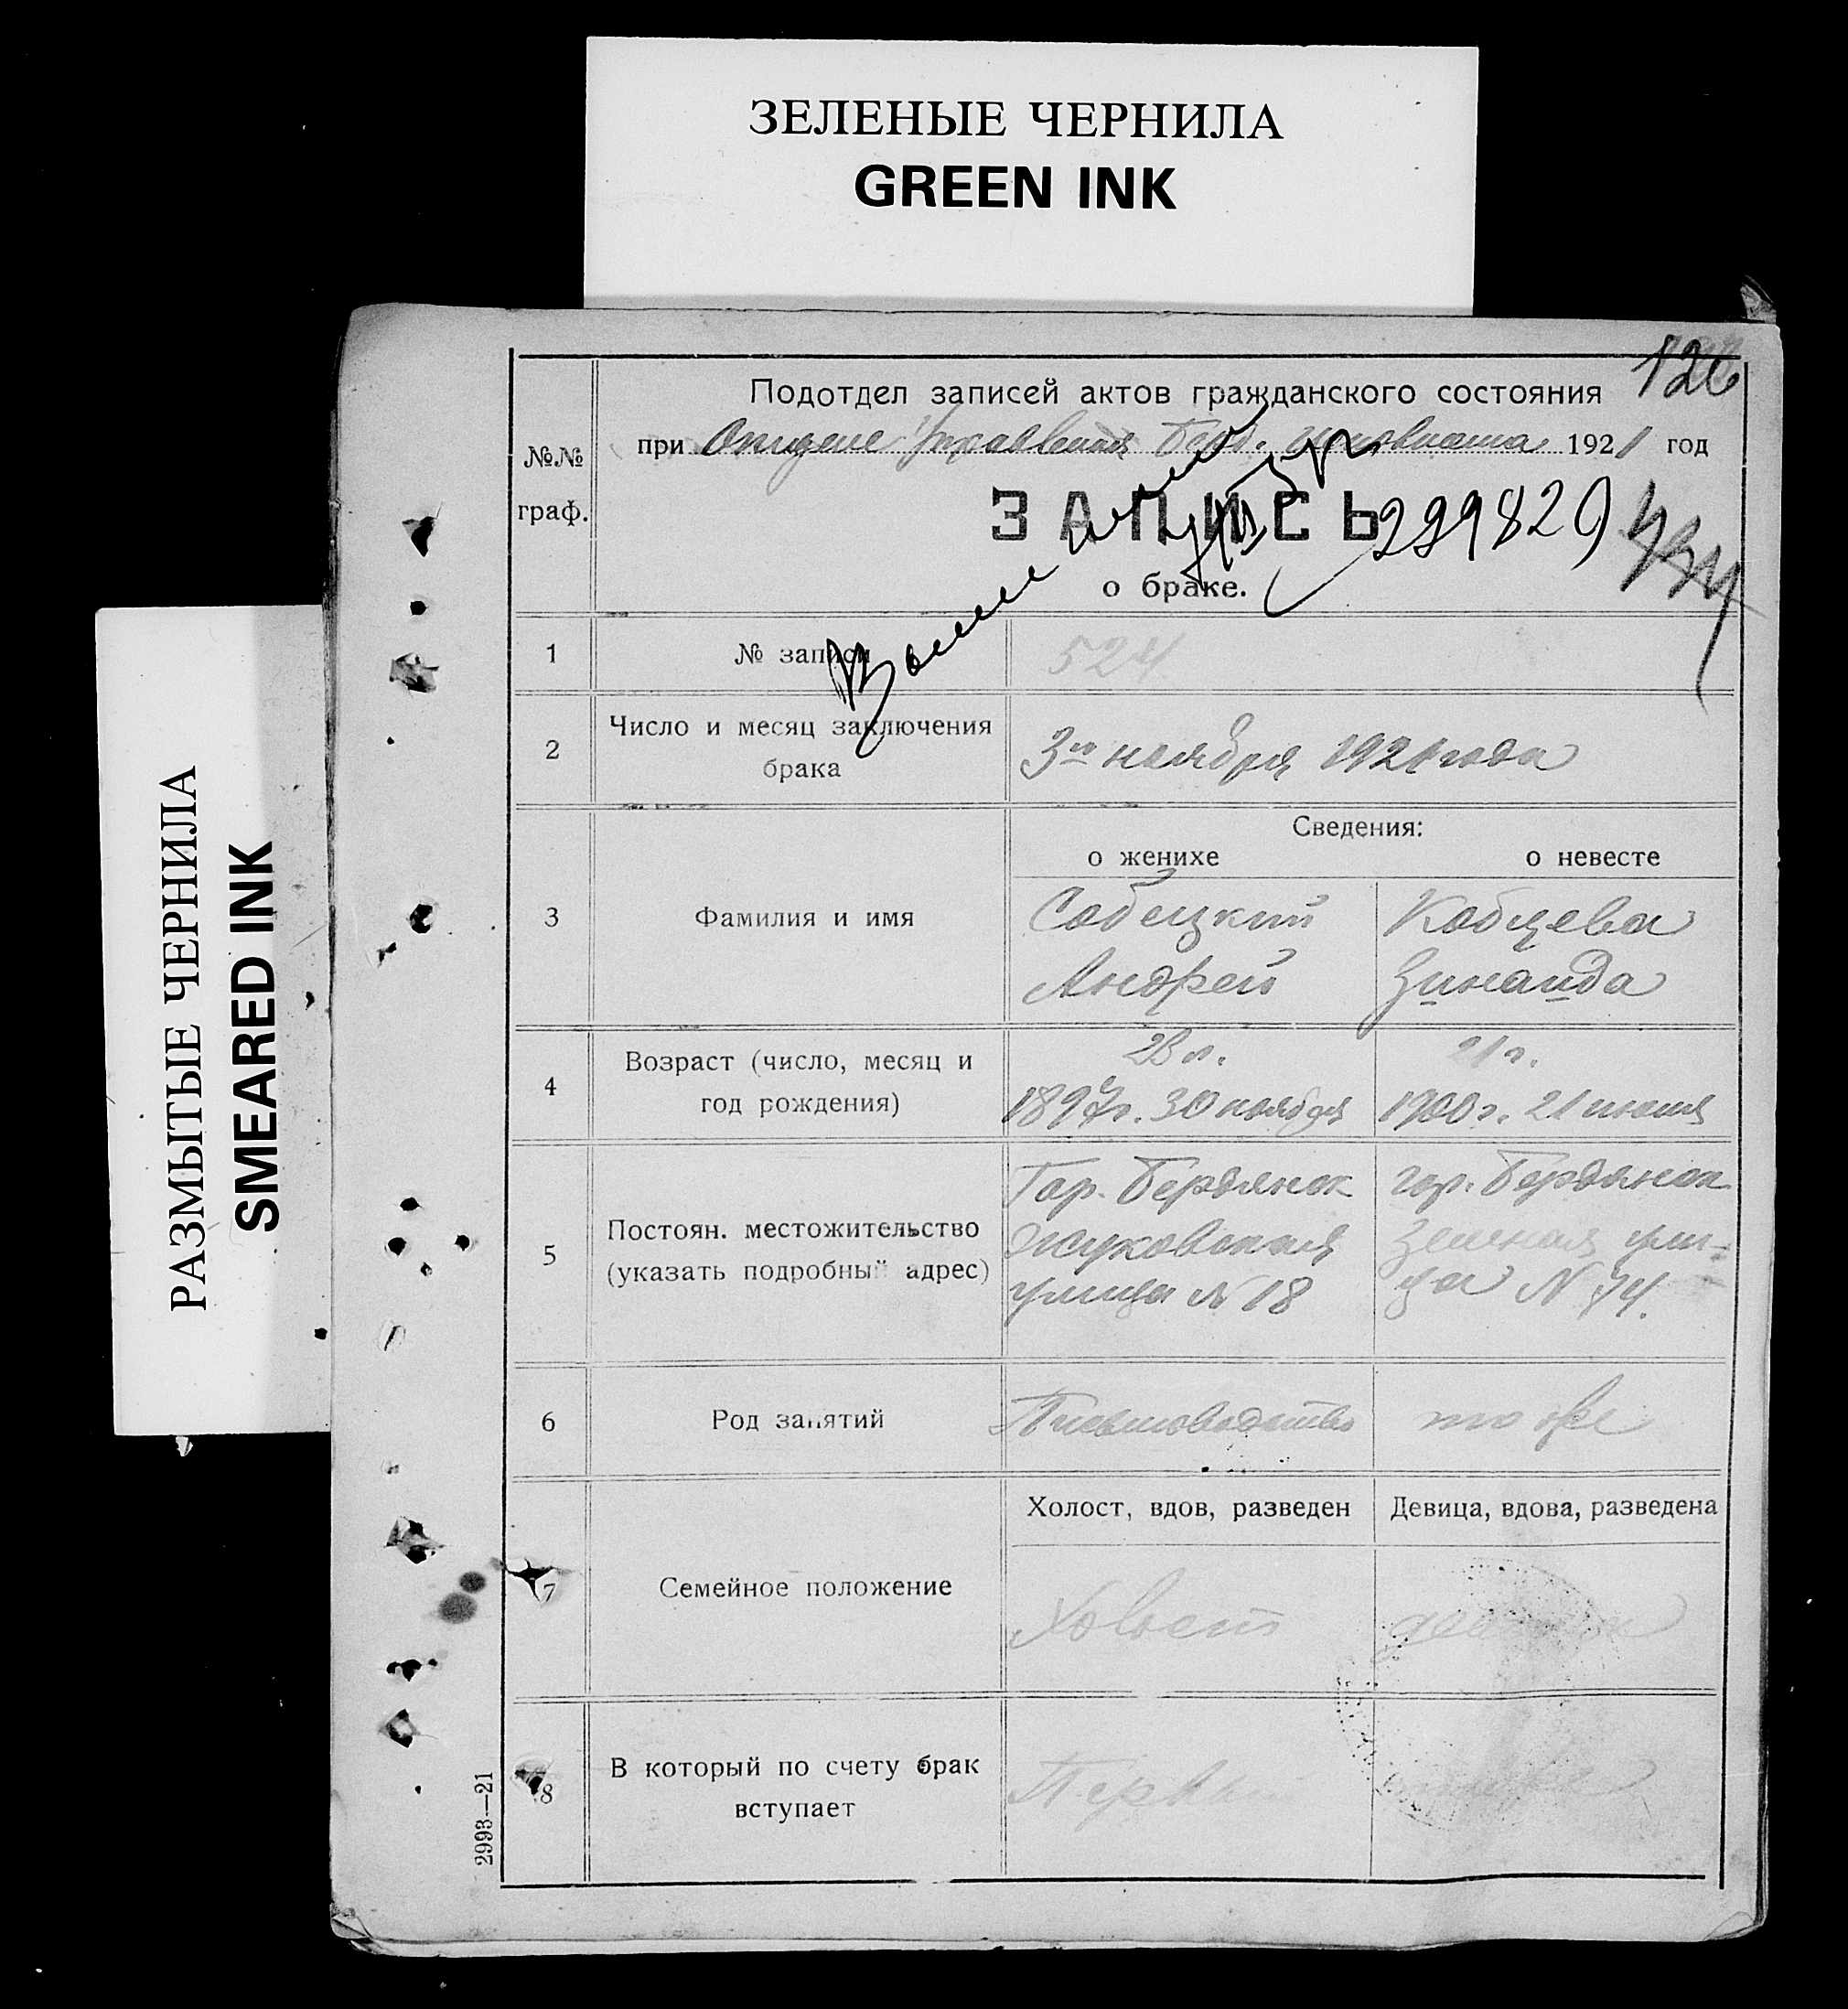 ЗЕЛЕНЫЕ ЧЕРНИЛА
GREEN INK
РАЗМЫТЫЕ ЧЕРНИЛА
SMEARED INK
126
Подотдел записей актов гражданского состояния
при Отделе Управления Берд. 1921 год
№№ граф.
ЗАПИСЬ
299829
о браке.
1 № записи 524
2 Число и месяц заключения брака
3го ноября 1921 года
Сведения:
о женихе о невесте
3 Фамилия и имя
Собецкий Кобцева
Андрей Зинаида
4 Возраст (число, месяц и год рождения)
23 л. 21 г.
1897г. 30 ноября 1900 г. 21 июня
5 Постоян. местожительство (указать подробный адрес)
Гор. Бердянск гор. Бердянск
Жуковская Зеленая ули-
улица № 18 ца N 74.
6 Род занятий
то же
Холост, вдов, разведен Девица, вдова, разведена
7 Семейное положение
Холост девица
8 В который по счету брак вступает
Перв
2993—21